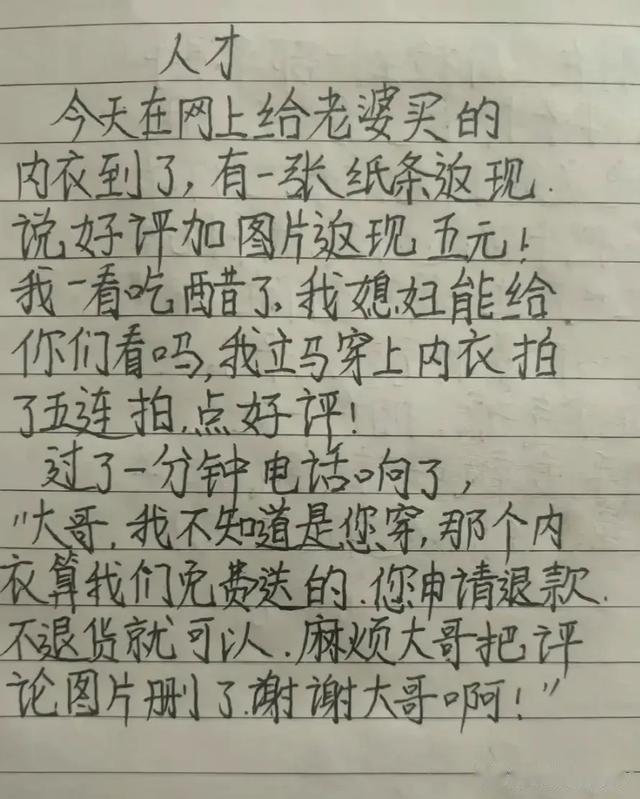 人才
今天在网上给老婆买的
内衣到了,有一张纸条返现.
说好评加图片返现五元!
我一看吃醋了,我媳妇能给
你们看吗,我立马穿上内衣拍
了五连拍,点好评!
过了一分钟电话响了,
"大哥,我不知道是您穿,那个内
衣算我们免费送的.您申请退款.
不退货就可以.麻烦大哥把评
论图片删了.谢谢大哥啊!"